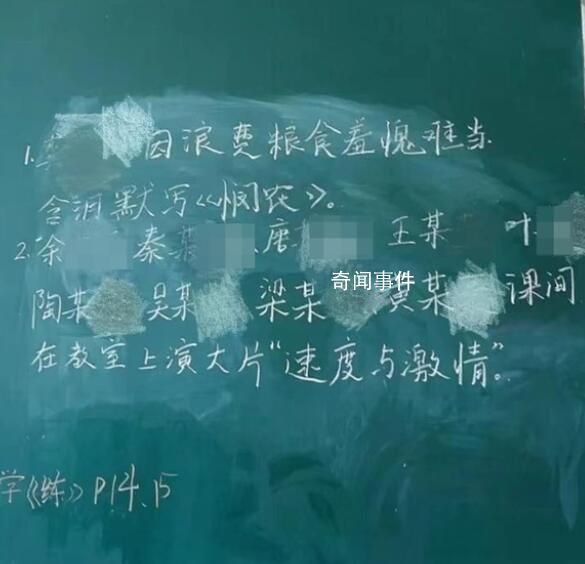 1. 因浪费粮食羞愧难当
含泪默写《悯农》。
2. 徐 秦某 唐 王某 叶
奇闻事件
陶某 吴某 梁某 黄某 课间
在教室上演大片“速度与激情”。
学《练》P14、15